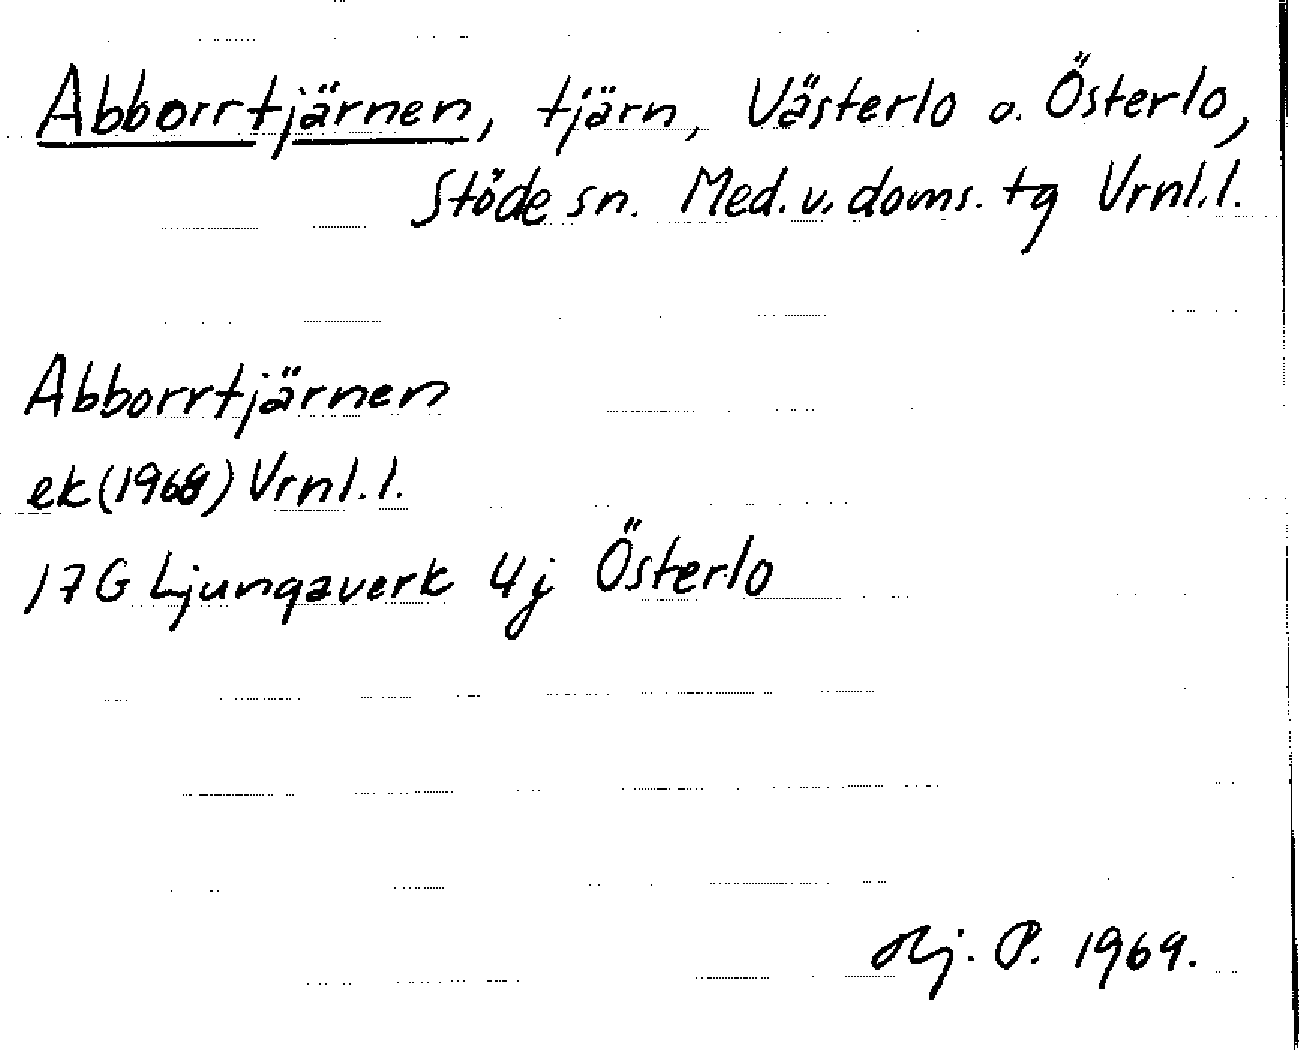 Abborrtjärnen, tjärn, Västerlo o. Österlo,
Stöde sn. Med. v. doms. tg Vrnl. l.
Abborrtjärnen
ek (1968) Vrnl. l.
17G Ljungaverk 4j Österlo
Hj. P. 1969.